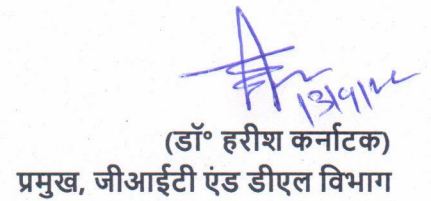 13/9/22
(डॉ॰ हरीश कर्नाटक)
प्रमुख, जीआईटी एंड डीएल विभाग